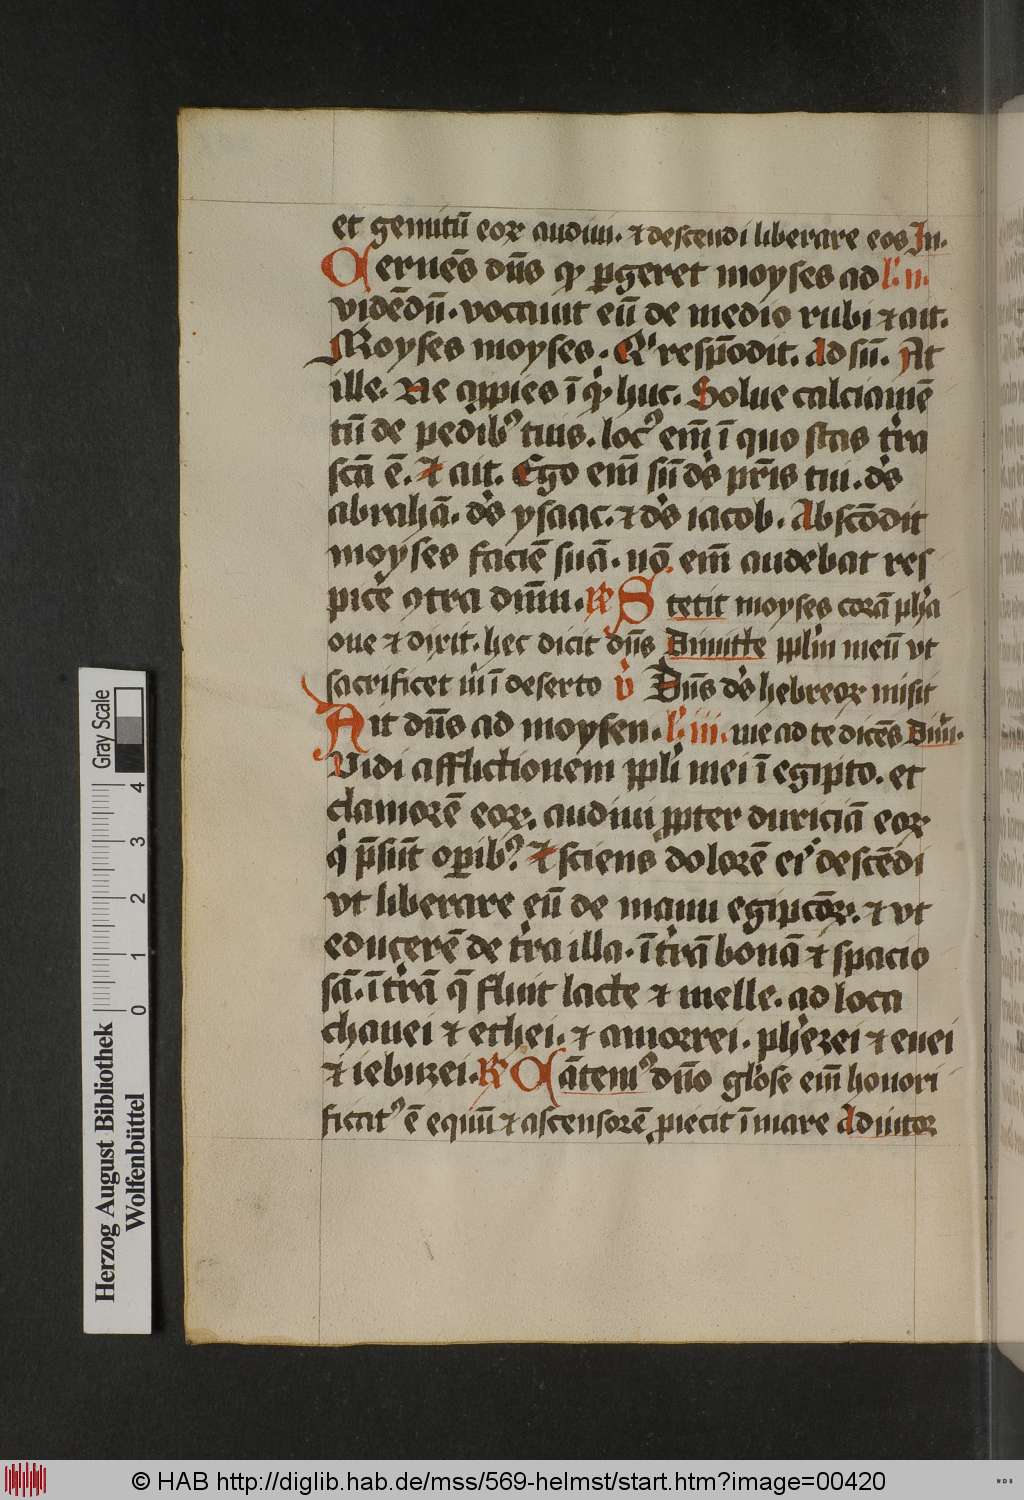 et gemitū eoꝝ audiui· ⁊ descendi liberare eos In·
Cernēs dn̄s ꝙ ꝑgeret moyses ad l'· ii·
vidēdū· vocauit eū de medio rubi ⁊ ait·
Moyses moyses· Qͥ respōdit· Adsū· At
ille· Ne appies ī ꝙͥ huc· Solue calciamē
tū de pedibꝰ tuis· locꝰ em̄ ī quo stas tr̄a
sc̄a ē· ⁊ ait· Ego em̄ sū dˢ pr̄is tui· dˢ
abrahā· dˢ ysaac· ⁊ dˢ iacob· Abscōdit
moyses faciē suā· nō em̄ audebat res
pice᷑ ꝯtra dn̄m· ℟ Stetit moyses corā pha
one ⁊ dixit· hec dicit dn̄s Dimitte ppl'm meū vt
sacrificet m̄ ī deserto v̓ Dn̄s dˢ hebreoꝝ misit
Ait dn̄s ad moysen· l'· iii· me ad te dicēs Dim̄·
Vidi afflictionem ppl'i mei ī egipto· et
clamorē eoꝝ· audiui ꝓpter duriciā eoꝝ
qͥ p̄sūt oꝑibꝰ· Et sciens dolorē eiꝰ descēdi
vt liberare eū de manu egipcōꝝ· ⁊ vt
educerē de tr̄a illa· ī tr̄ā bonā ⁊ spacio
sā· ī tr̄ā q̄ fluit lacte ⁊ melle· ad loca
chanei ⁊ ethei· ⁊ amorrei· pherezei ⁊ euei
⁊ iebuzei· ℟ Cātemꝰ dn̄o gl'ose em̄ honori
ficatꝰ ē equū ⁊ ascensorē ꝓiecit ī mare Adiutor
Gray Scale
0 1 2 3 4
Herzog August Bibliothek
Wolfenbüttel
© HAB http://diglib.hab.de/mss/569-helmst/start.htm?image=00420